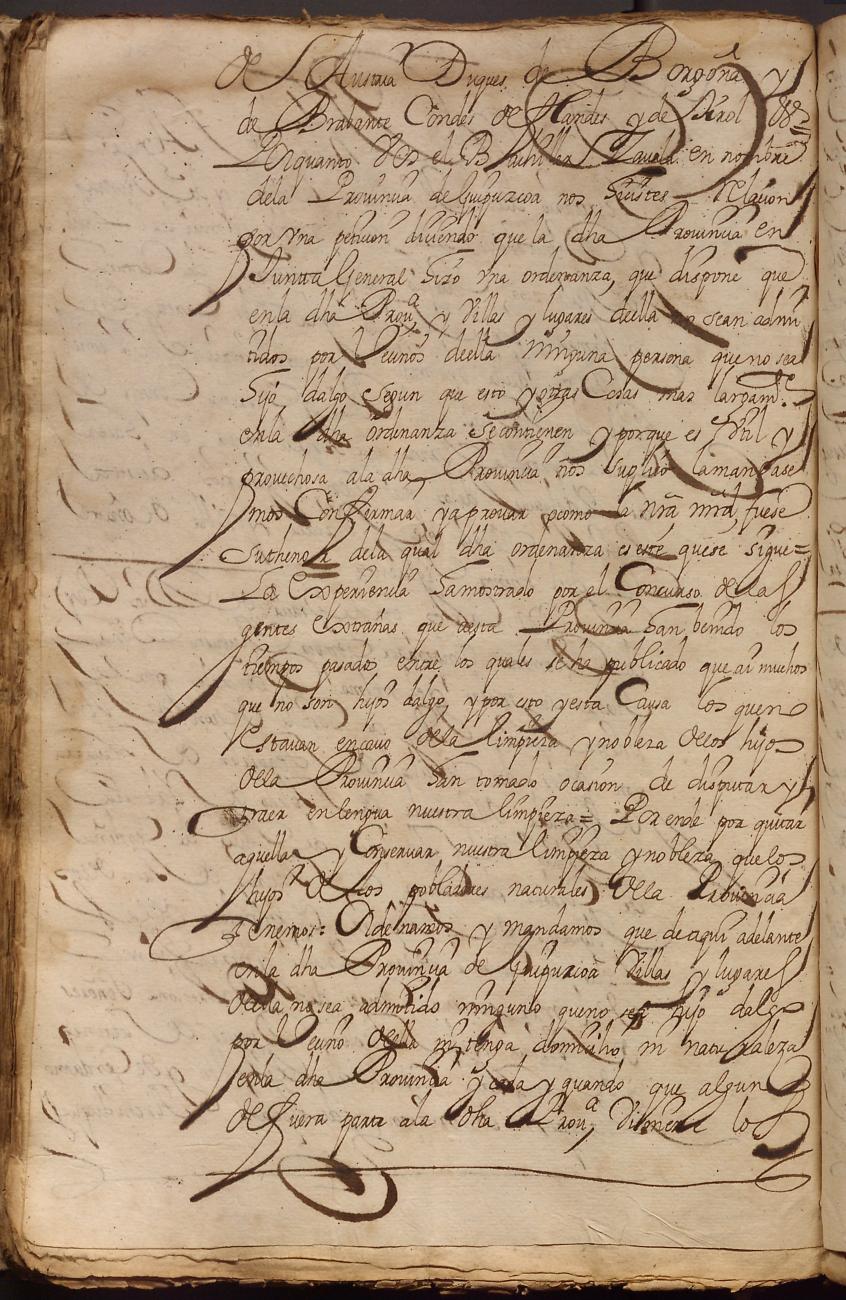 de Austria Duques de Borgoña y
de Brabante Condes de Flandes y de Tirol &c
Por quanto Vos el Bachiller Zavala en nombre
dela Provincia de Guipuzcoa nos hizistes Relacion
por vna peticion diziendo que la dha Provincia en
Juntta General hizo vna ordenanza, que dispone que
enla dha Prouª y Villas y lugares deella no sean admi
tidos por Vezinos deella ninguna persona que no sea
hijo dalgo segun que esto y otras Cosas mas largamte
enla dha ordenanza se contienen y porque es Vtil y
provechosa ala dha Provincia nos suplicó la mandase
mos Confirmar, y aprouar o como la nrã mrd fuese
su thenor dela qual dha ordenanza es este que se sigue=
La Experiencia ha mostrado por el Concurso de las
gentes extrañas que a esta Provincia han benido los
tiempos pasados entre los quales se ha publicado que ai muchos
que no son hijos dalgo, y por esto y esta Causa los que no
Estauan en cauo dela limpieza y nobleza delos hijos
dela Provincia han tomado ocasion de disputar y
traer en lengua nuestra limpieza= Por ende por quitar
aquella y Conseruar nuestra limpieza y nobleza que los
hijos delos pobladores naturales dela Provincia
tenemos: Ordenamos y mandamos que de aqui adelante
enla dha Provincia de Guipuzcoa Villas y lugares
deella no sea admitido ninguno que no sea hijo dalgo
por Vezino deella ni tenga domicilio ni naturaleza
enla dha Provincia y cada y quando que alguno
de fuera parte a la dha Prouª viniere los